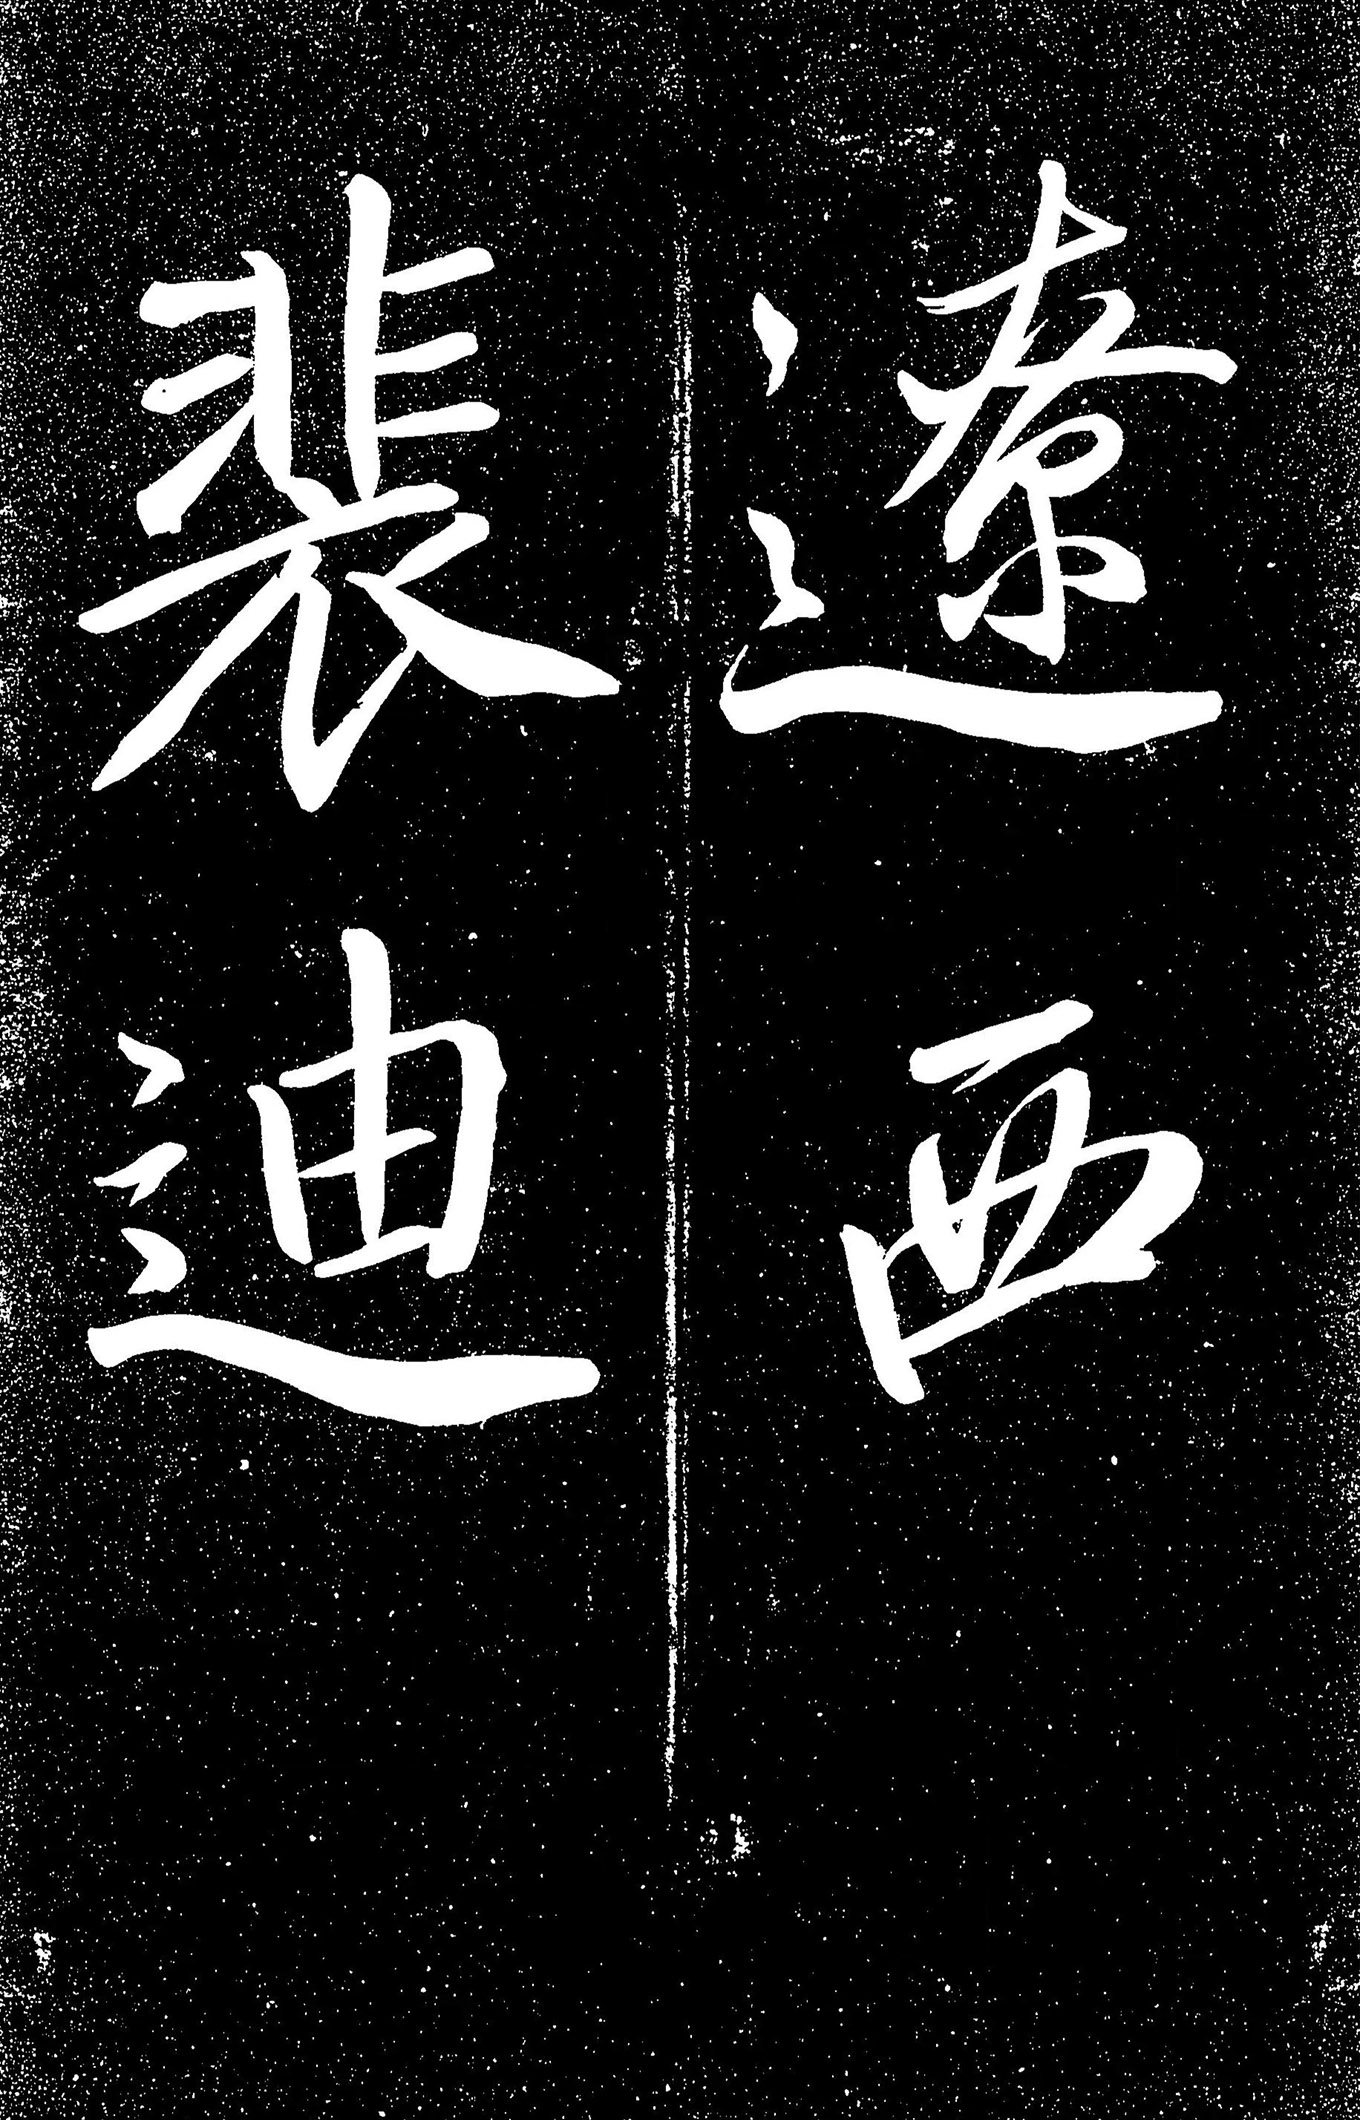 遼西
裴迪